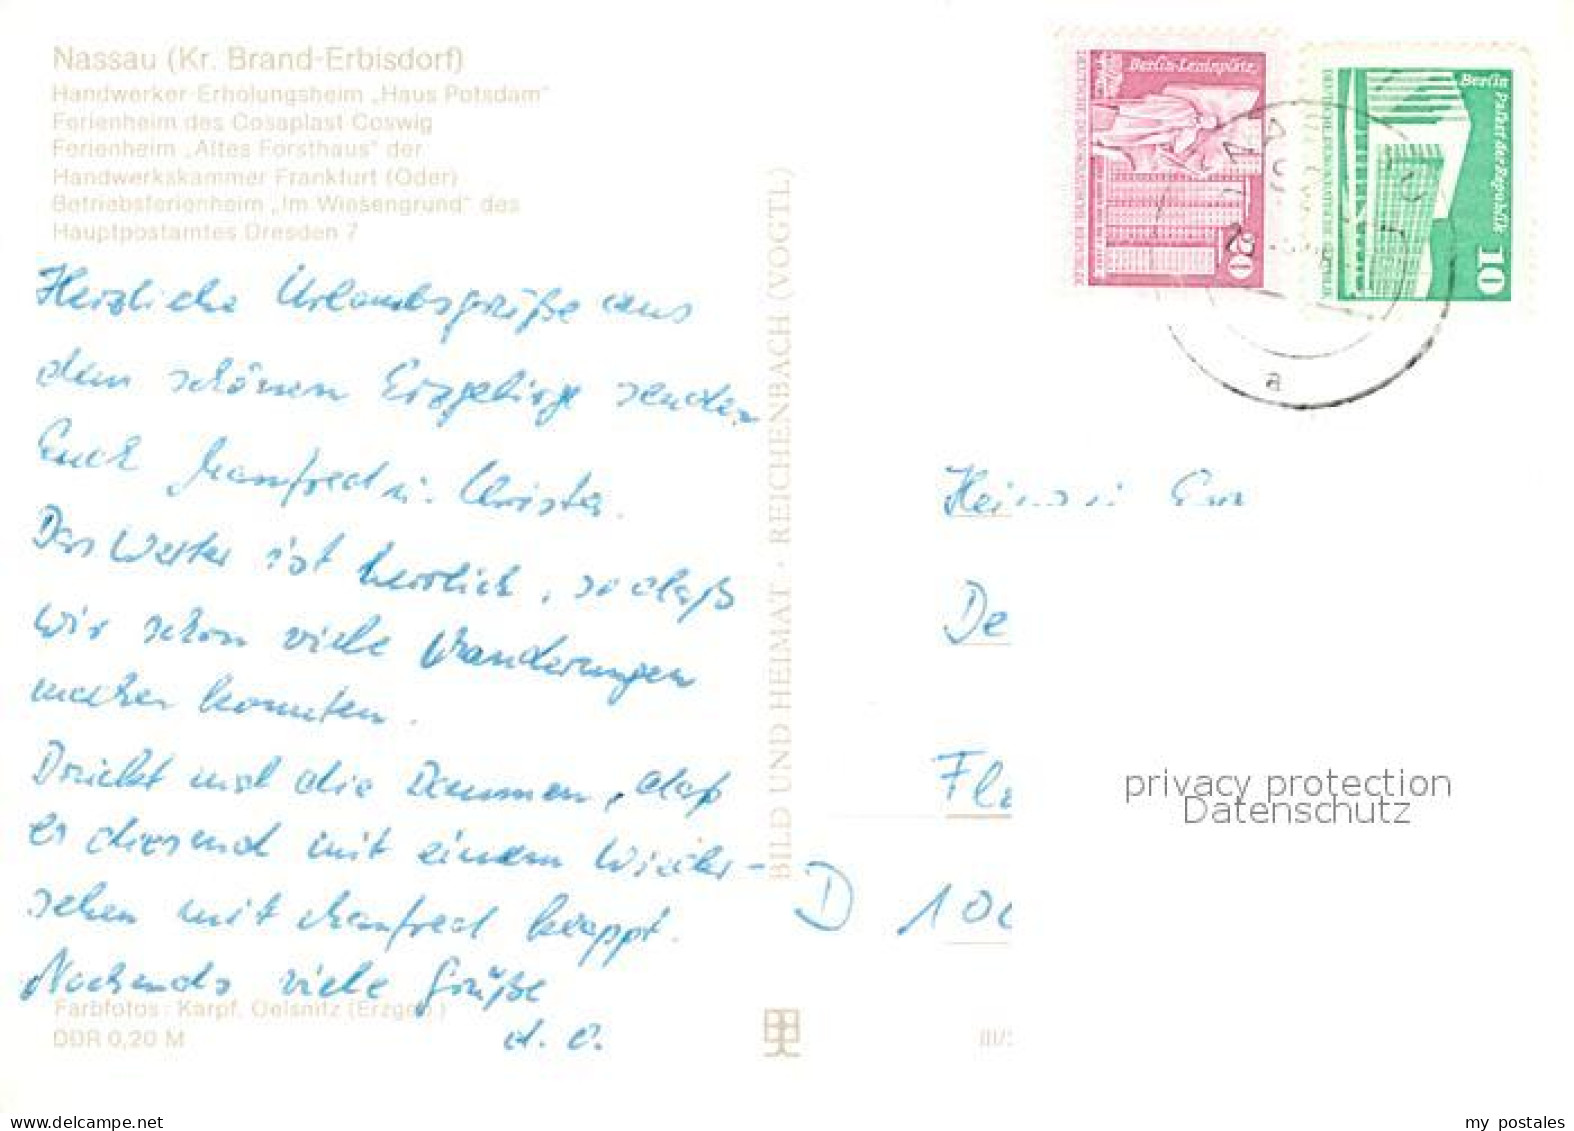 Nassau (Kr. Brand-Erbisdorf)
Handwerker-Erholungsheim „Haus Potsdam"
Ferienheim des Cosaplast Coswig
Ferienheim „Altes Forsthaus" der
Handwerkskammer Frankfurt (Oder)
Betriebsferienheim „Im Wiesengrund" des
Hauptpostamtes Dresden 7
Herzliche Urlaubsgrüße aus
dem schönen Erzgebirge senden
Euch Manfred u. Christa.
Das Wetter ist herrlich, so daß
wir schon viele Wanderungen
machen konnten.
Drückt mal die Daumen, daß
es diesmal mit einem Wieder-
sehen mit Manfred klappt.
Nochmals viele Grüße
d. O.
Farbfotos: Karpf, Oelsnitz (Erzgeb.)
DDR 0,20 M
BILD UND HEIMAT · REICHENBACH (VOGTL)
III/
Berlin-Leninplatz
DEUTSCHE DEMOKRATISCHE REPUBLIK
20
Berlin Palast der Republik
DEUTSCHE DEMOKRATISCHE REPUBLIK
10
a
De
Fle
D 100
privacy protection
Datenschutz
www.delcampe.net
my postales